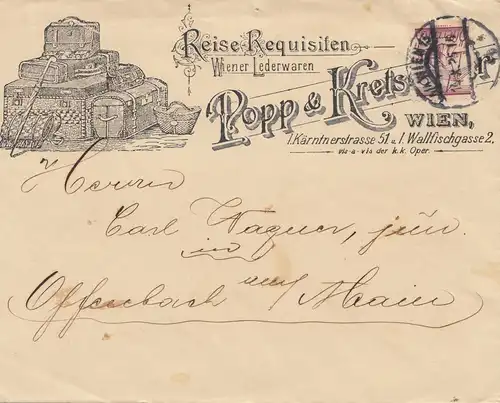 Reise Requisiten
Wiener Lederwaren
Popp & Krets
WIEN,
I. Kärntnerstrasse 51 u. I. Wallfischgasse 2.
vis-a-vis der k.k. Oper.
Herrn
Carl Wagner, jun.
in
Offenbach am Main